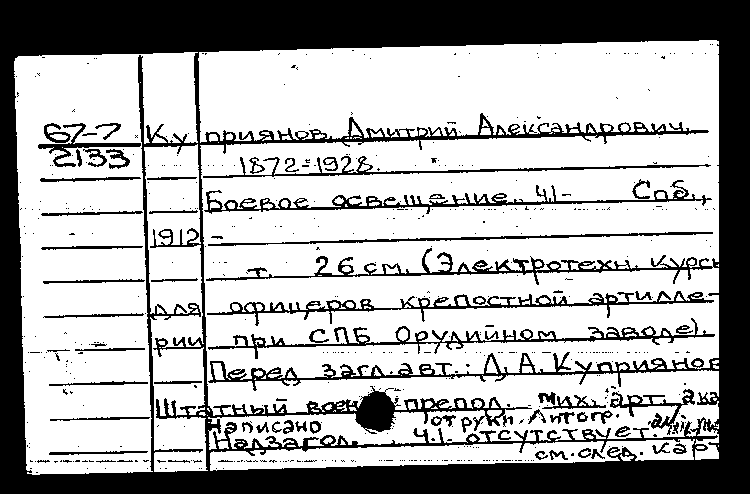 67-7 Куприянов, Дмитрий Александрович.
2133 1872-1928.
Боевое освещение. Ч.1- Спб.,
1912 -
т. 26 см. (Электротехн. курсы
для офицеров крепостной артилле-
рии при СПБ Орудийном заводе).
Перед загл. авт.: Д. А. Куприянов
Штатный воен препол. мих. арт. ака
Написано от руки. Литогр.
Надзагол. Ч.1. отсутствует.
см. след. карт